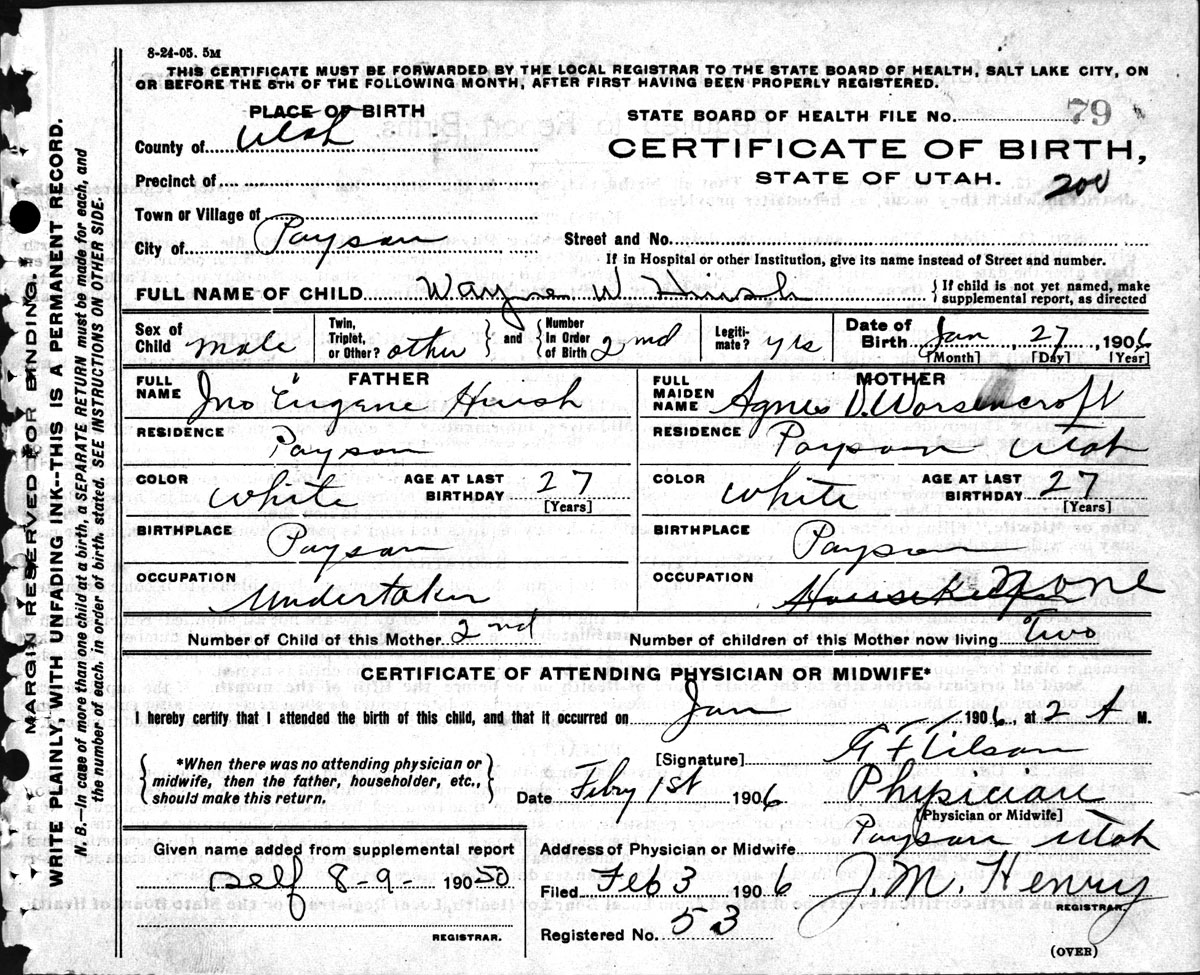 8-24-05. 5M
THIS CERTIFICATE MUST BE FORWARDED BY THE LOCAL REGISTRAR TO THE STATE BOARD OF HEALTH, SALT LAKE CITY, ON
OR BEFORE THE 5TH OF THE FOLLOWING MONTH, AFTER FIRST HAVING BEEN PROPERLY REGISTERED.
PLACE OF BIRTH
County of Utah
Precinct of
Town or Village of
City of Payson
STATE BOARD OF HEALTH FILE No. 79
CERTIFICATE OF BIRTH,
STATE OF UTAH.
200
Street and No.
If in Hospital or other Institution, give its name instead of Street and number.
FULL NAME OF CHILD Wayne W Hiush { If child is not yet named, make
supplemental report, as directed
Sex of Child male Twin, Triplet, or Other? other } and { Number In Order of Birth 2nd Legiti-mate? yrs Date of Birth Jan 27 1906
[Month] [Day] [Year]
FATHER
FULL NAME Jno Eugene Huish
RESIDENCE Payson
COLOR White AGE AT LAST BIRTHDAY 27
[Years]
BIRTHPLACE Payson
OCCUPATION Undertaker
MOTHER
FULL MAIDEN NAME Agnes D. Worsencroft
RESIDENCE Payson Utah
COLOR White AGE AT LAST BIRTHDAY 27
[Years]
BIRTHPLACE Payson
OCCUPATION Housekeeper None
Number of Child of this Mother 2nd Number of children of this Mother now living Two
CERTIFICATE OF ATTENDING PHYSICIAN OR MIDWIFE*
I hereby certify that I attended the birth of this child, and that it occurred on Jan 1906, at 2 A M.
{ *When there was no attending physician or
midwife, then the father, householder, etc.,
should make this return. }
[Signature]
Date Febry 1st 1906 Physician
[Physician or Midwife]
Address of Physician or Midwife Payson Utah
Filed Feb 3 1906 J. M. Henry
REGISTRAR.
Registered No. 53
(OVER)
Given name added from supplemental report
self 8-9- 19050
REGISTRAR.
MARGIN RESERVED FOR BINDING.
WRITE PLAINLY, WITH UNFADING INK--THIS IS A PERMANENT RECORD.
N. B.—In case of more than one child at a birth, a SEPARATE RETURN must be made for each, and
the number of each, in order of birth, stated. SEE INSTRUCTIONS ON OTHER SIDE.